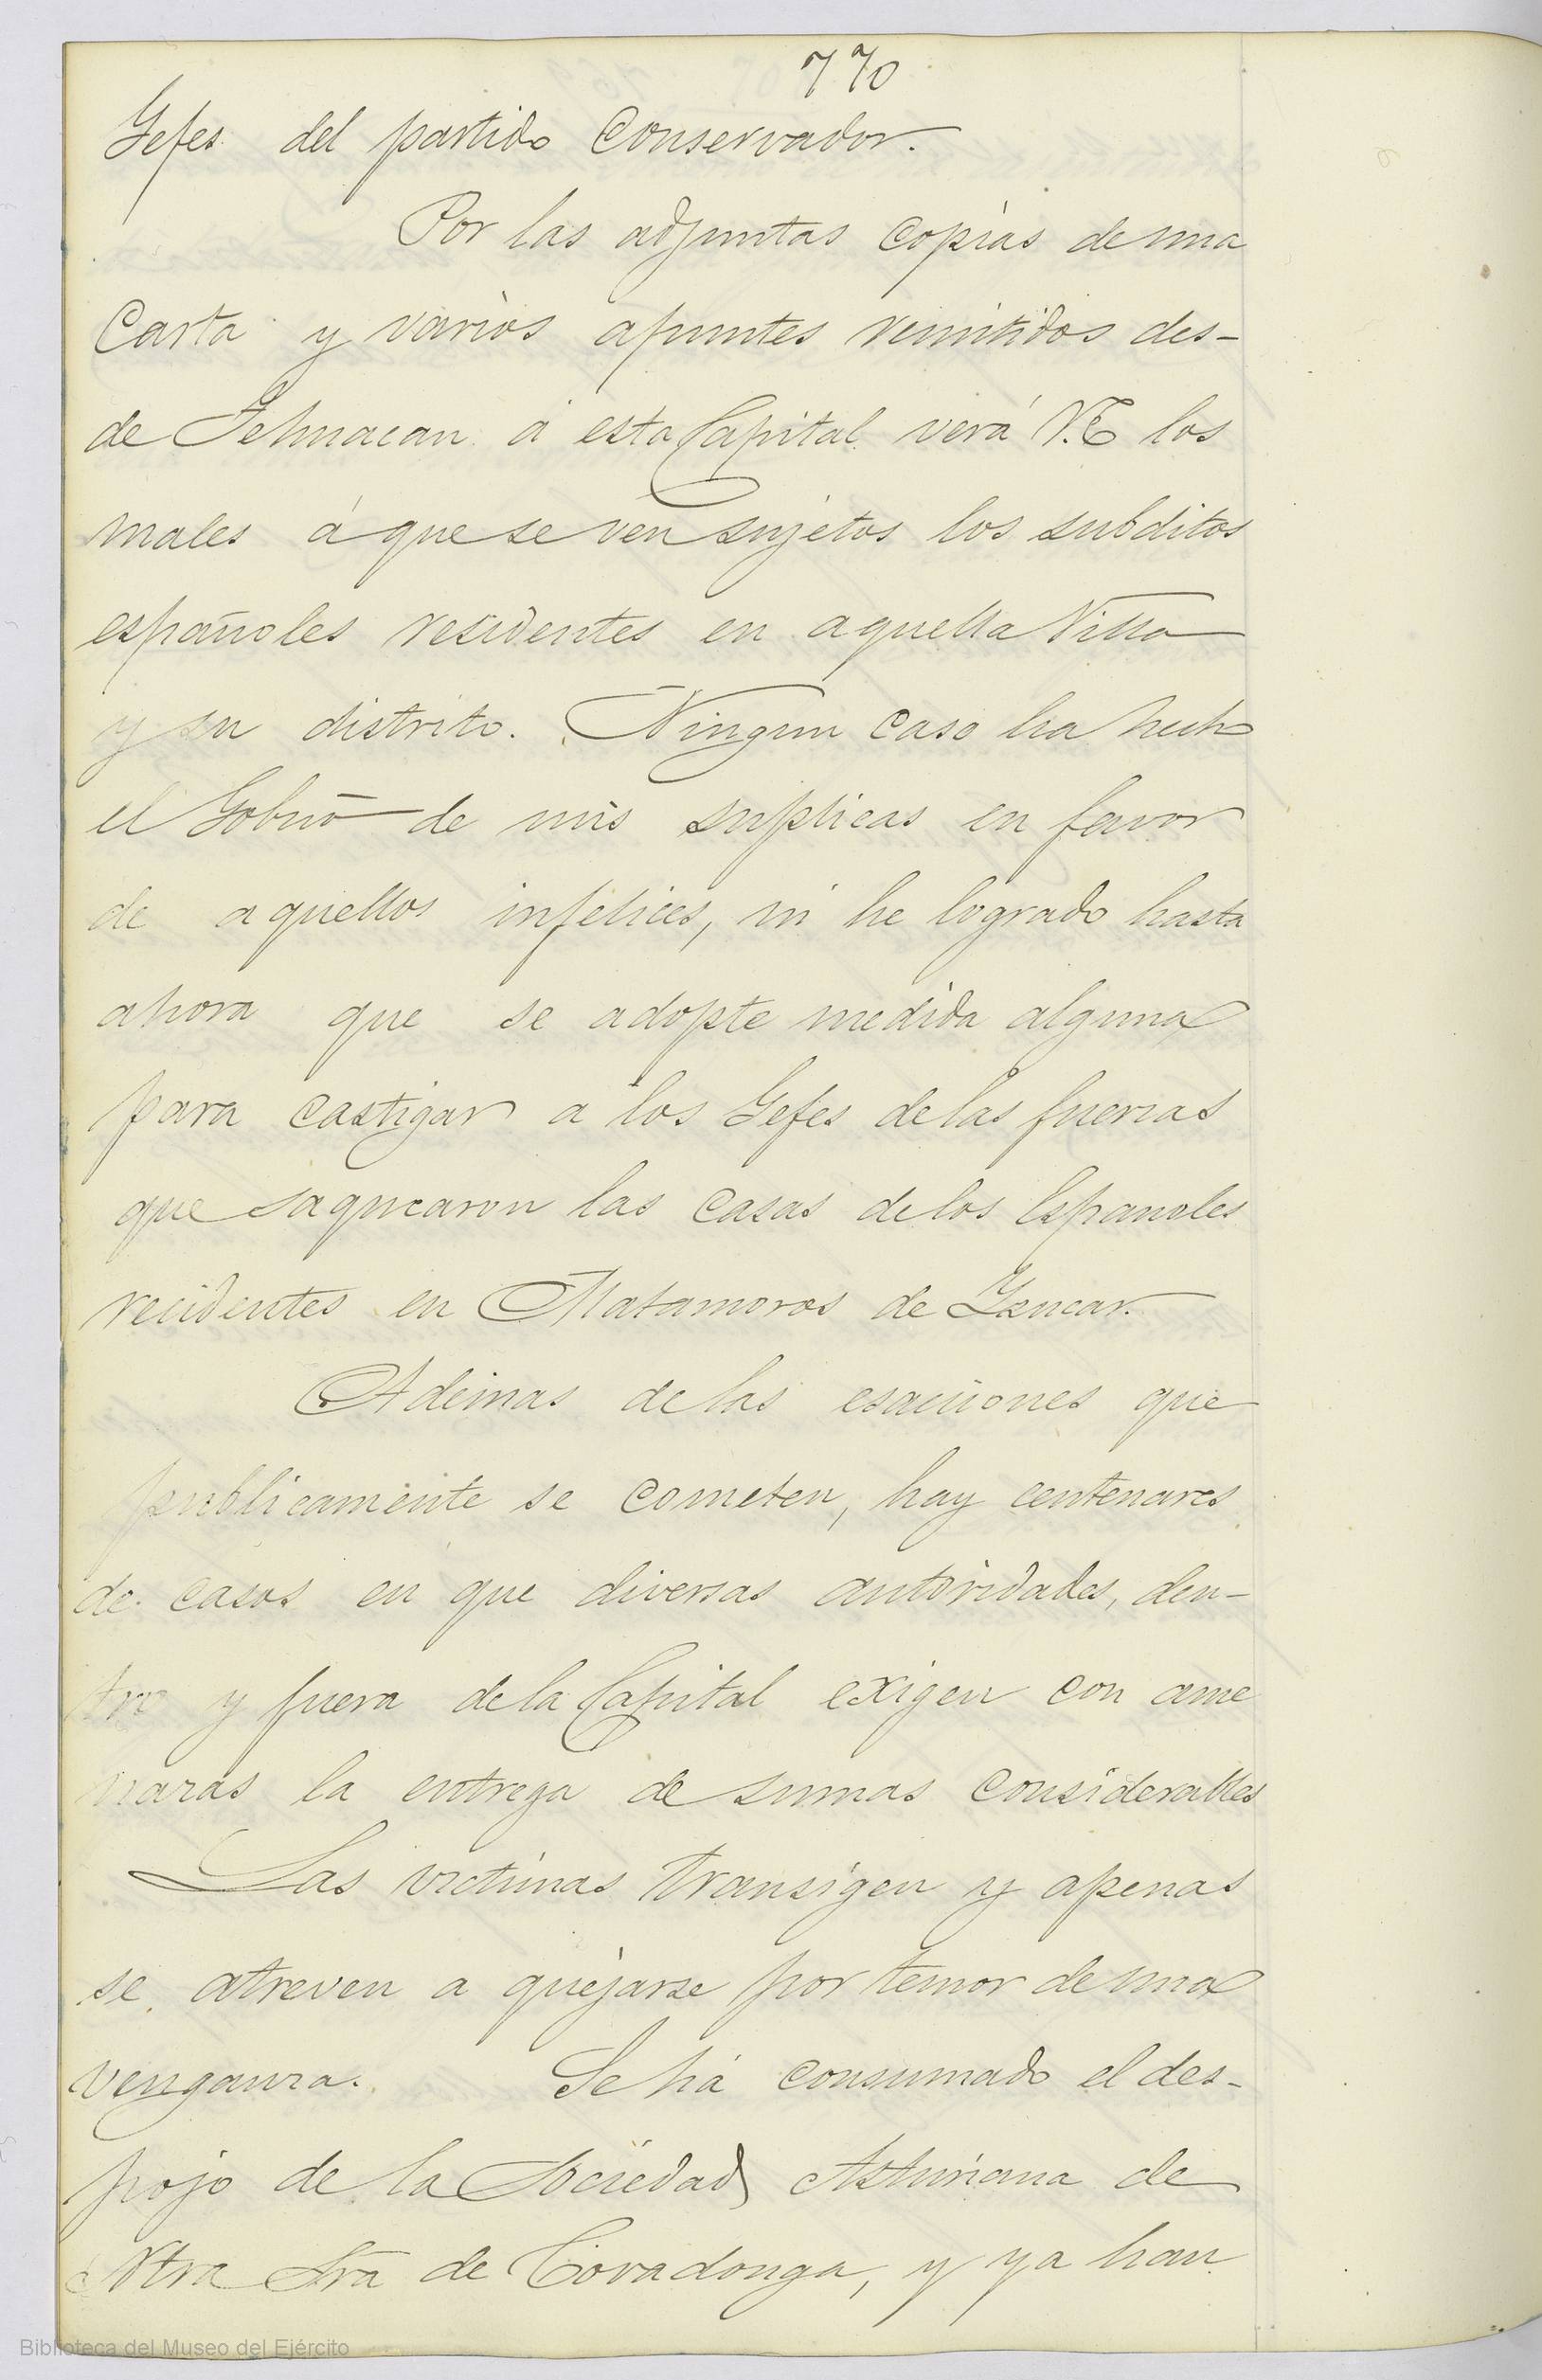 770
Gefes del partido Conservador.
Por las adjuntas copias de una
Carta y varios apuntes remitidos des-
de Tehuacan á esta Capital verá V.E los
males á que se ven sujetos los subditos
españoles residentes en aquella Villa
y su distrito. Ningun caso ha hecho
el Gobnō de mis suplicas en favor
de aquellos infelices, ni he logrado hasta
ahora que se adopte medida alguna
para castigar a los Gefes de las fuerzas
que saquearon las casas de los Españoles
recidentes en Matamoros de Yzucar.
Ademas de las esacciones que
publicamente se cometen, hay centenares
de casos en que diversas autoridades, den-
tro y fuera de la Capital exigen con ame
nazas la entrega de sumas considerables
Las victimas transigen y apenas
se atreven a quejarse por temor de una
venganza. Se há consumado el des-
pojo de la Sociedad Asturiana de
Ntra Sra de Covadonga, y ya han
Biblioteca del Museo del Ejército